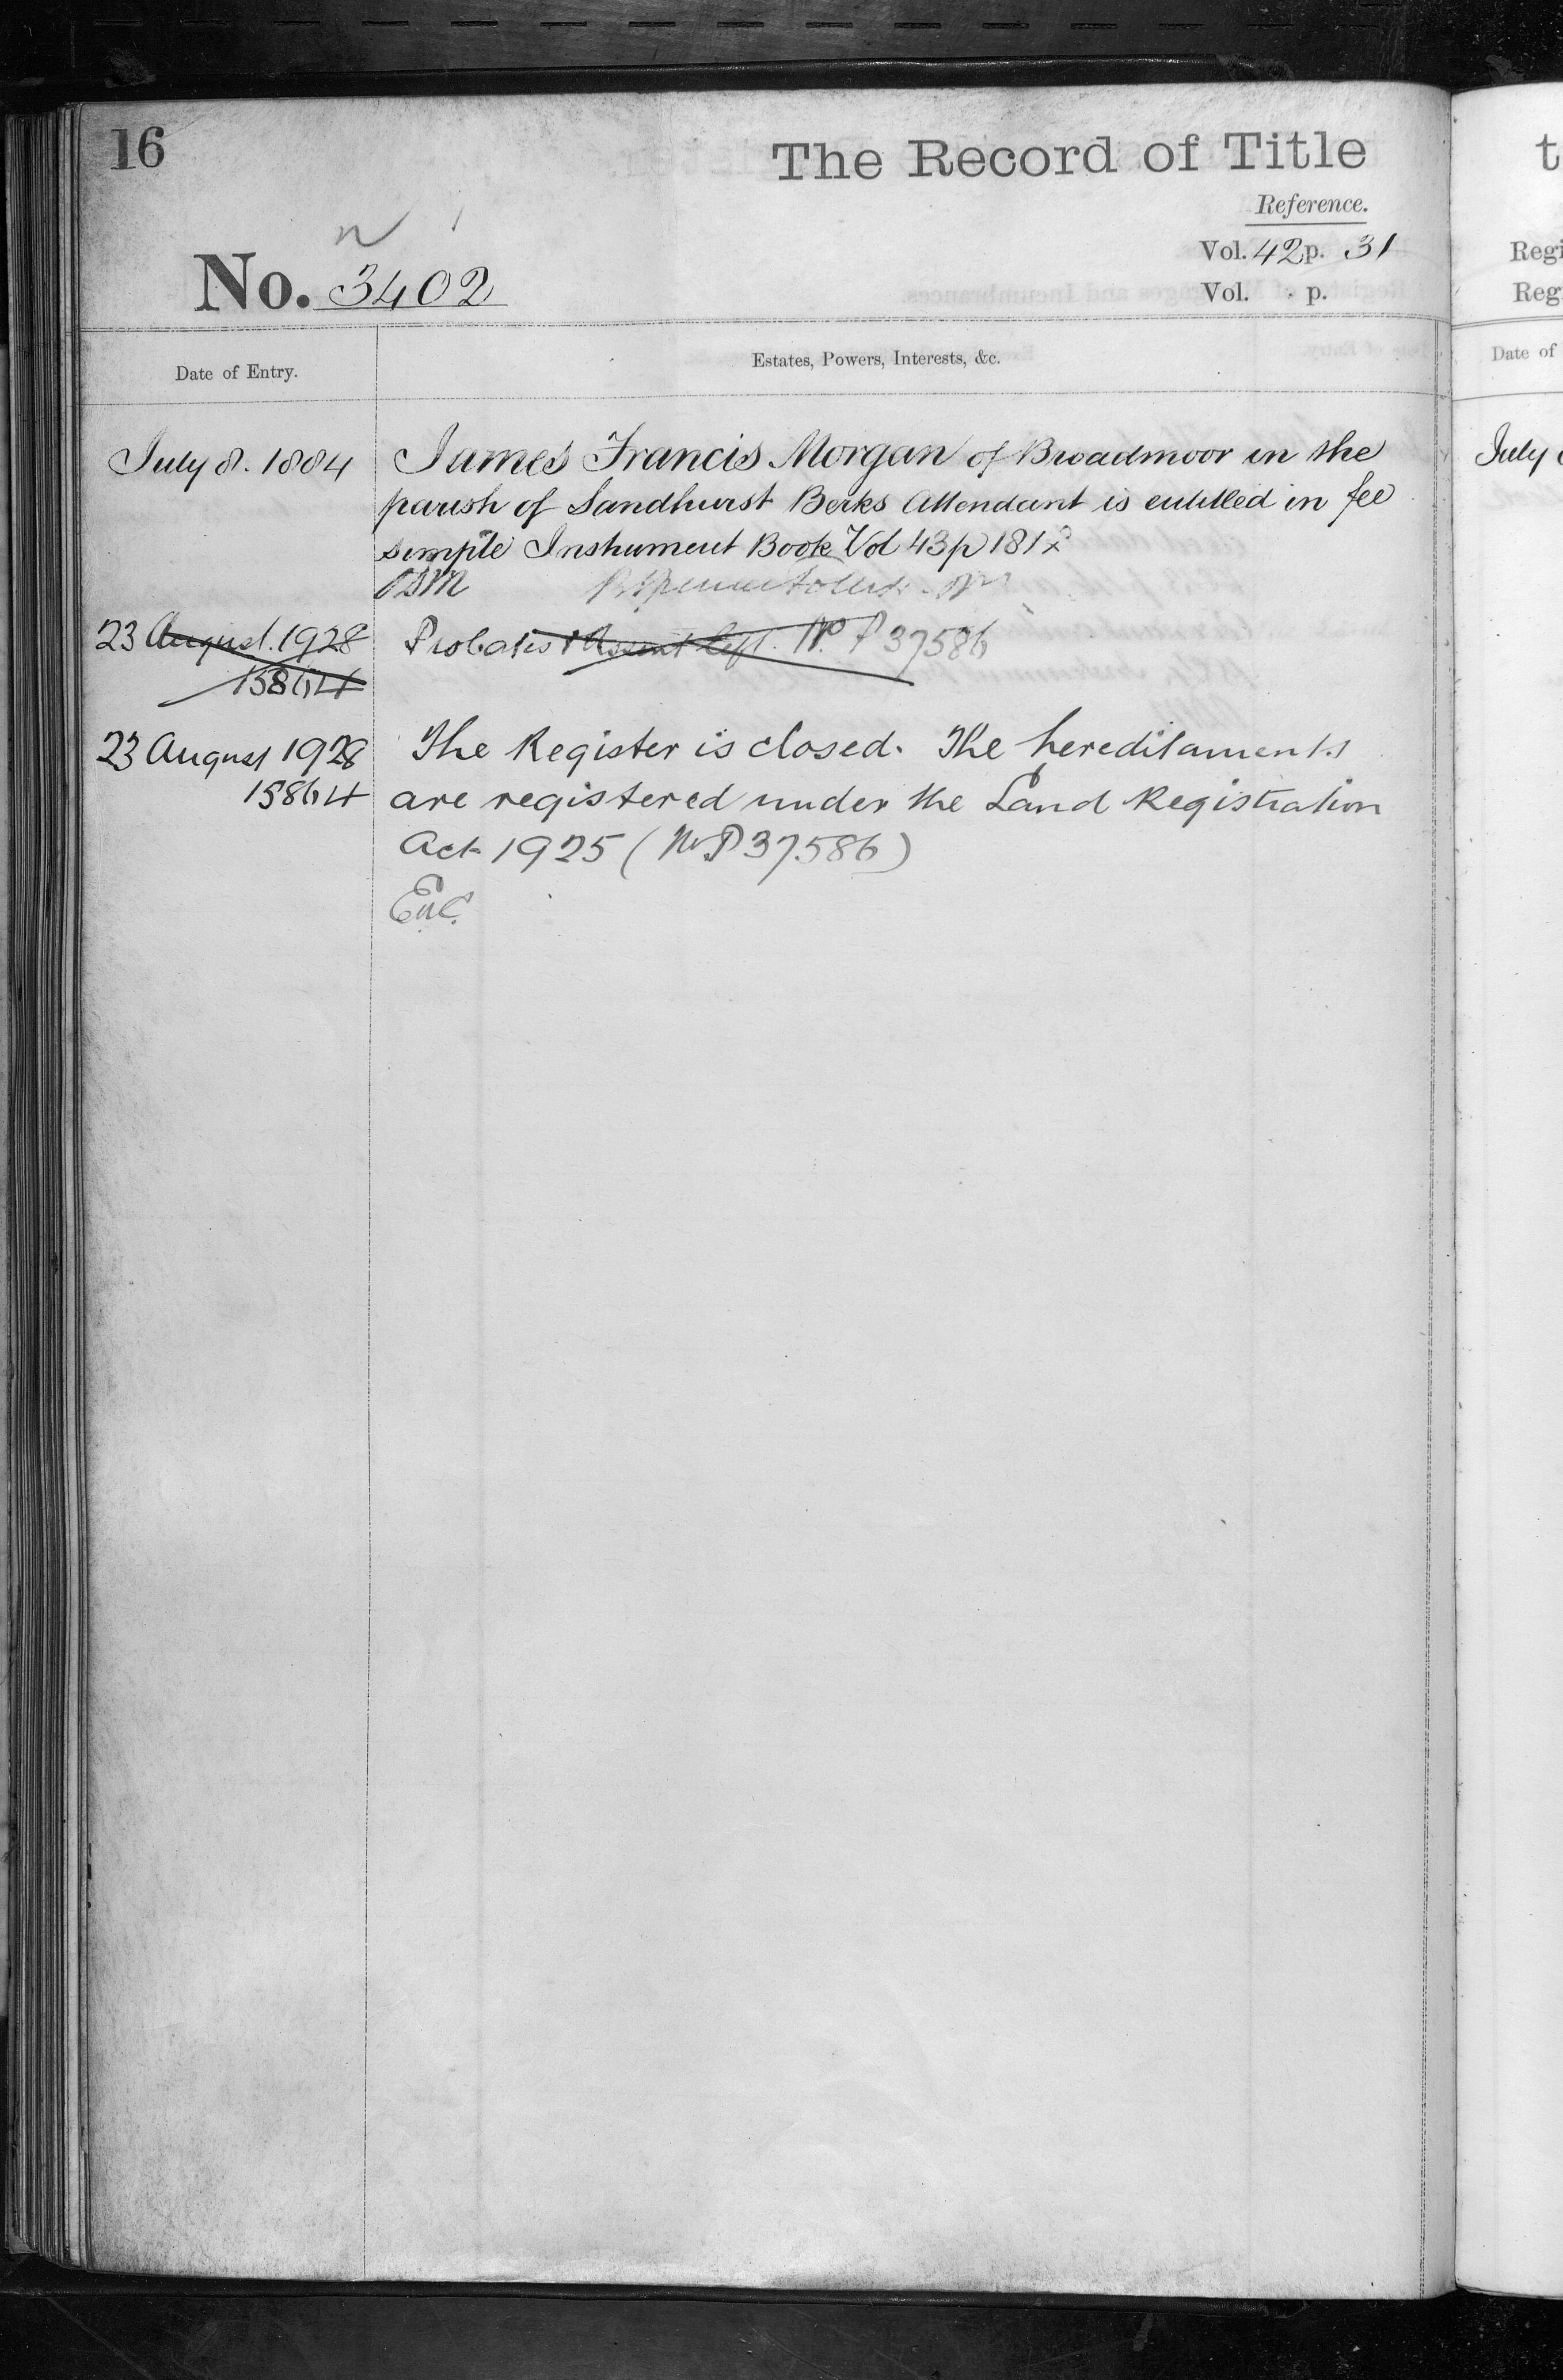 16
The Record of Title
Reference.
Vol. 42 p. 31
Vol. p.
No. 3402
Date of Entry.
Estates, Powers, Interests, &c.
July 8. 1884
James Francis Morgan of Broadmoor in the
parish of Sandhurst Berks Attendant is entitled in fee
simple Instrument Book Vol 43 p 181
23 August. 1928
Probates & Assent left. No. P 37586
15864
23 August 1928
The Register is closed. The hereditaments
15864
are registered under the Land Registration
Act 1925 (No P 37586)
t
Regi
Reg
Date of
July